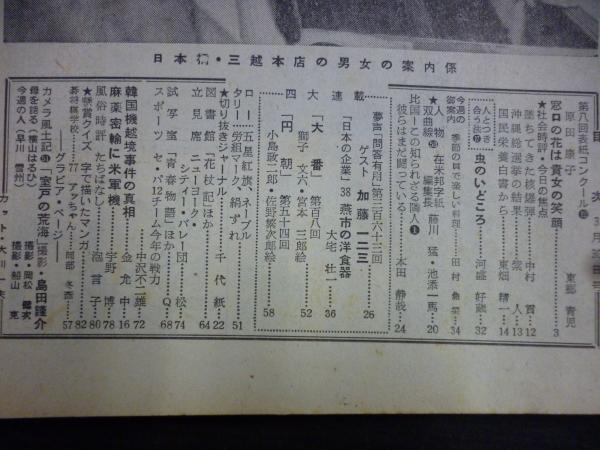 日本橋・三越本店の男女の案内係
目次 3月30日号
第八回表紙コンクール⑫
原田康子
窓口の花は貴女の笑顔……東郷青児 3
★社会時評・今日の焦点
墮ちてきた核爆弾……中村貢 12
沖縄総選挙の結果……蒙人 13
国民栄養白書から……東畑精一 14
人とつき合う法⑫ 虫のいどころ……河盛好蔵 32
今週の御案内 季節の貝で楽しい料理……田村魚菜 34
★人物双曲線㊿ 在米邦字紙編集長 藤川猛・池添一馬 20
比国―この知られざる隣人❶
彼らはまだ闘っている……本田靖哉 24
夢声「問答有用」第三百六十三回
ゲスト 加藤一二三 26
「日本の企業」38 燕市の洋食器
大宅壮一 36
四大連載
「大番」第百八回
獅子文六・宮本三郎絵 52
「円朝」第五十四回
小島政二郎・佐野繁次郎絵 58
ロータリー 五星紅旗、ネーブル、労組マーク、絹ずれ 51
★切り抜きジャーナル……千代紙 22
図書館 「花杖記」ほか 64
立見席 ニューヨーク・シティ・バレー団……松 74
試写室 「青春物語」ほか……Q 68
スポーツ セ・パ12チーム今年の戦力
中沢不二雄 72
韓国機越境事件の真相……金允中 16
麻薬密輸に米軍機……宇野博 78
風俗時評 たちばなし……泡言子 80
★懸賞クイズ 字で描いたマンガ 82
碁将棋学校……77 アッちゃん……岡部冬彦 57
―グラビア・ページ―
カメラ風土記㊿「室戸の荒海」撮影・島田謹介
母を語る(横山はるひ) 撮影・岡松
今週の人(早川雪洲) 撮影・船山克
カット・大川一夫